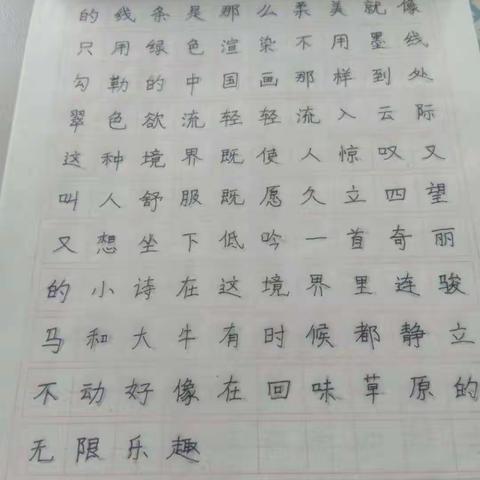 的线条是那么柔美就像
只用绿色渲染不用墨线
勾勒的中国画那样到处
翠色欲流轻轻流入云际
这种境界既使人惊叹又
叫人舒服既愿久立四望
又想坐下低吟一首奇丽
的小诗在这境界里连骏
马和大牛有时候都静立
不动好像在回味草原的
无限乐趣